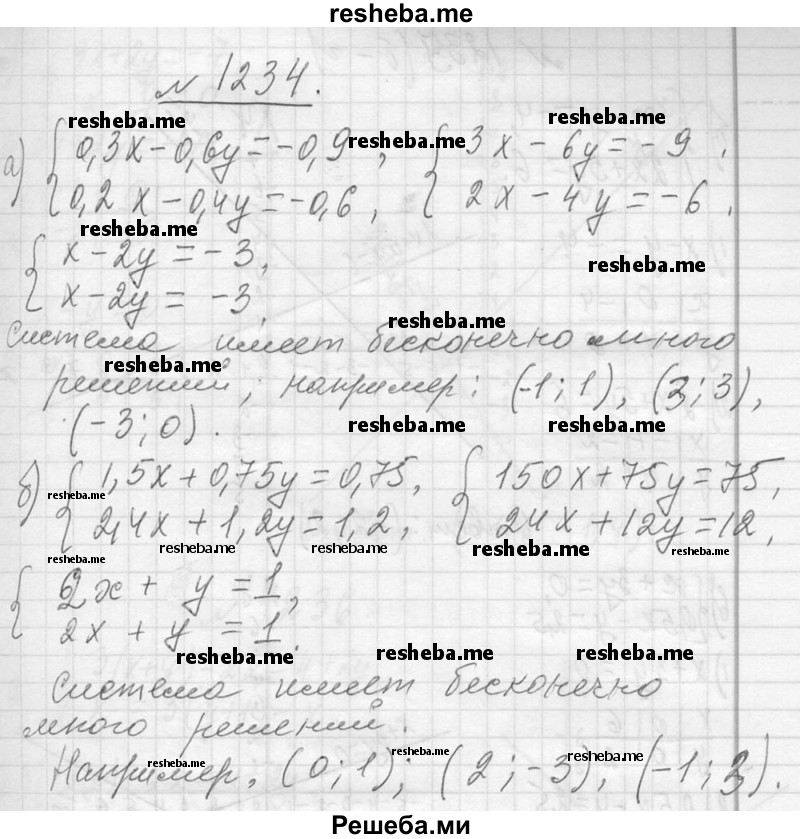 resheba.me
№ 1234.
resheba.me resheba.me resheba.me
а) { 0,3x - 0,6y = -0,9, { 3x - 6y = -9,
0,2x - 0,4y = -0,6, 2x - 4y = -6.
resheba.me
{ x - 2y = -3, resheba.me
x - 2y = -3
resheba.me
Система имеет бесконечно много
resheba.me
решений, например: (-1; 1), (3; 3),
(-3; 0). resheba.me resheba.me
б) { 1,5x + 0,75y = 0,75, { 150x + 75y = 75,
resheba.me
2,4x + 1,2y = 1,2, 24x + 12y = 12,
resheba.me resheba.me resheba.me resheba.me
{ 2x + y = 1,
2x + y = 1.
resheba.me resheba.me resheba.me
Система имеет бесконечно
много решений.
resheba.me resheba.me resheba.me
Например, (0; 1); (2; -3), (-1; 3).
Решеба.ми